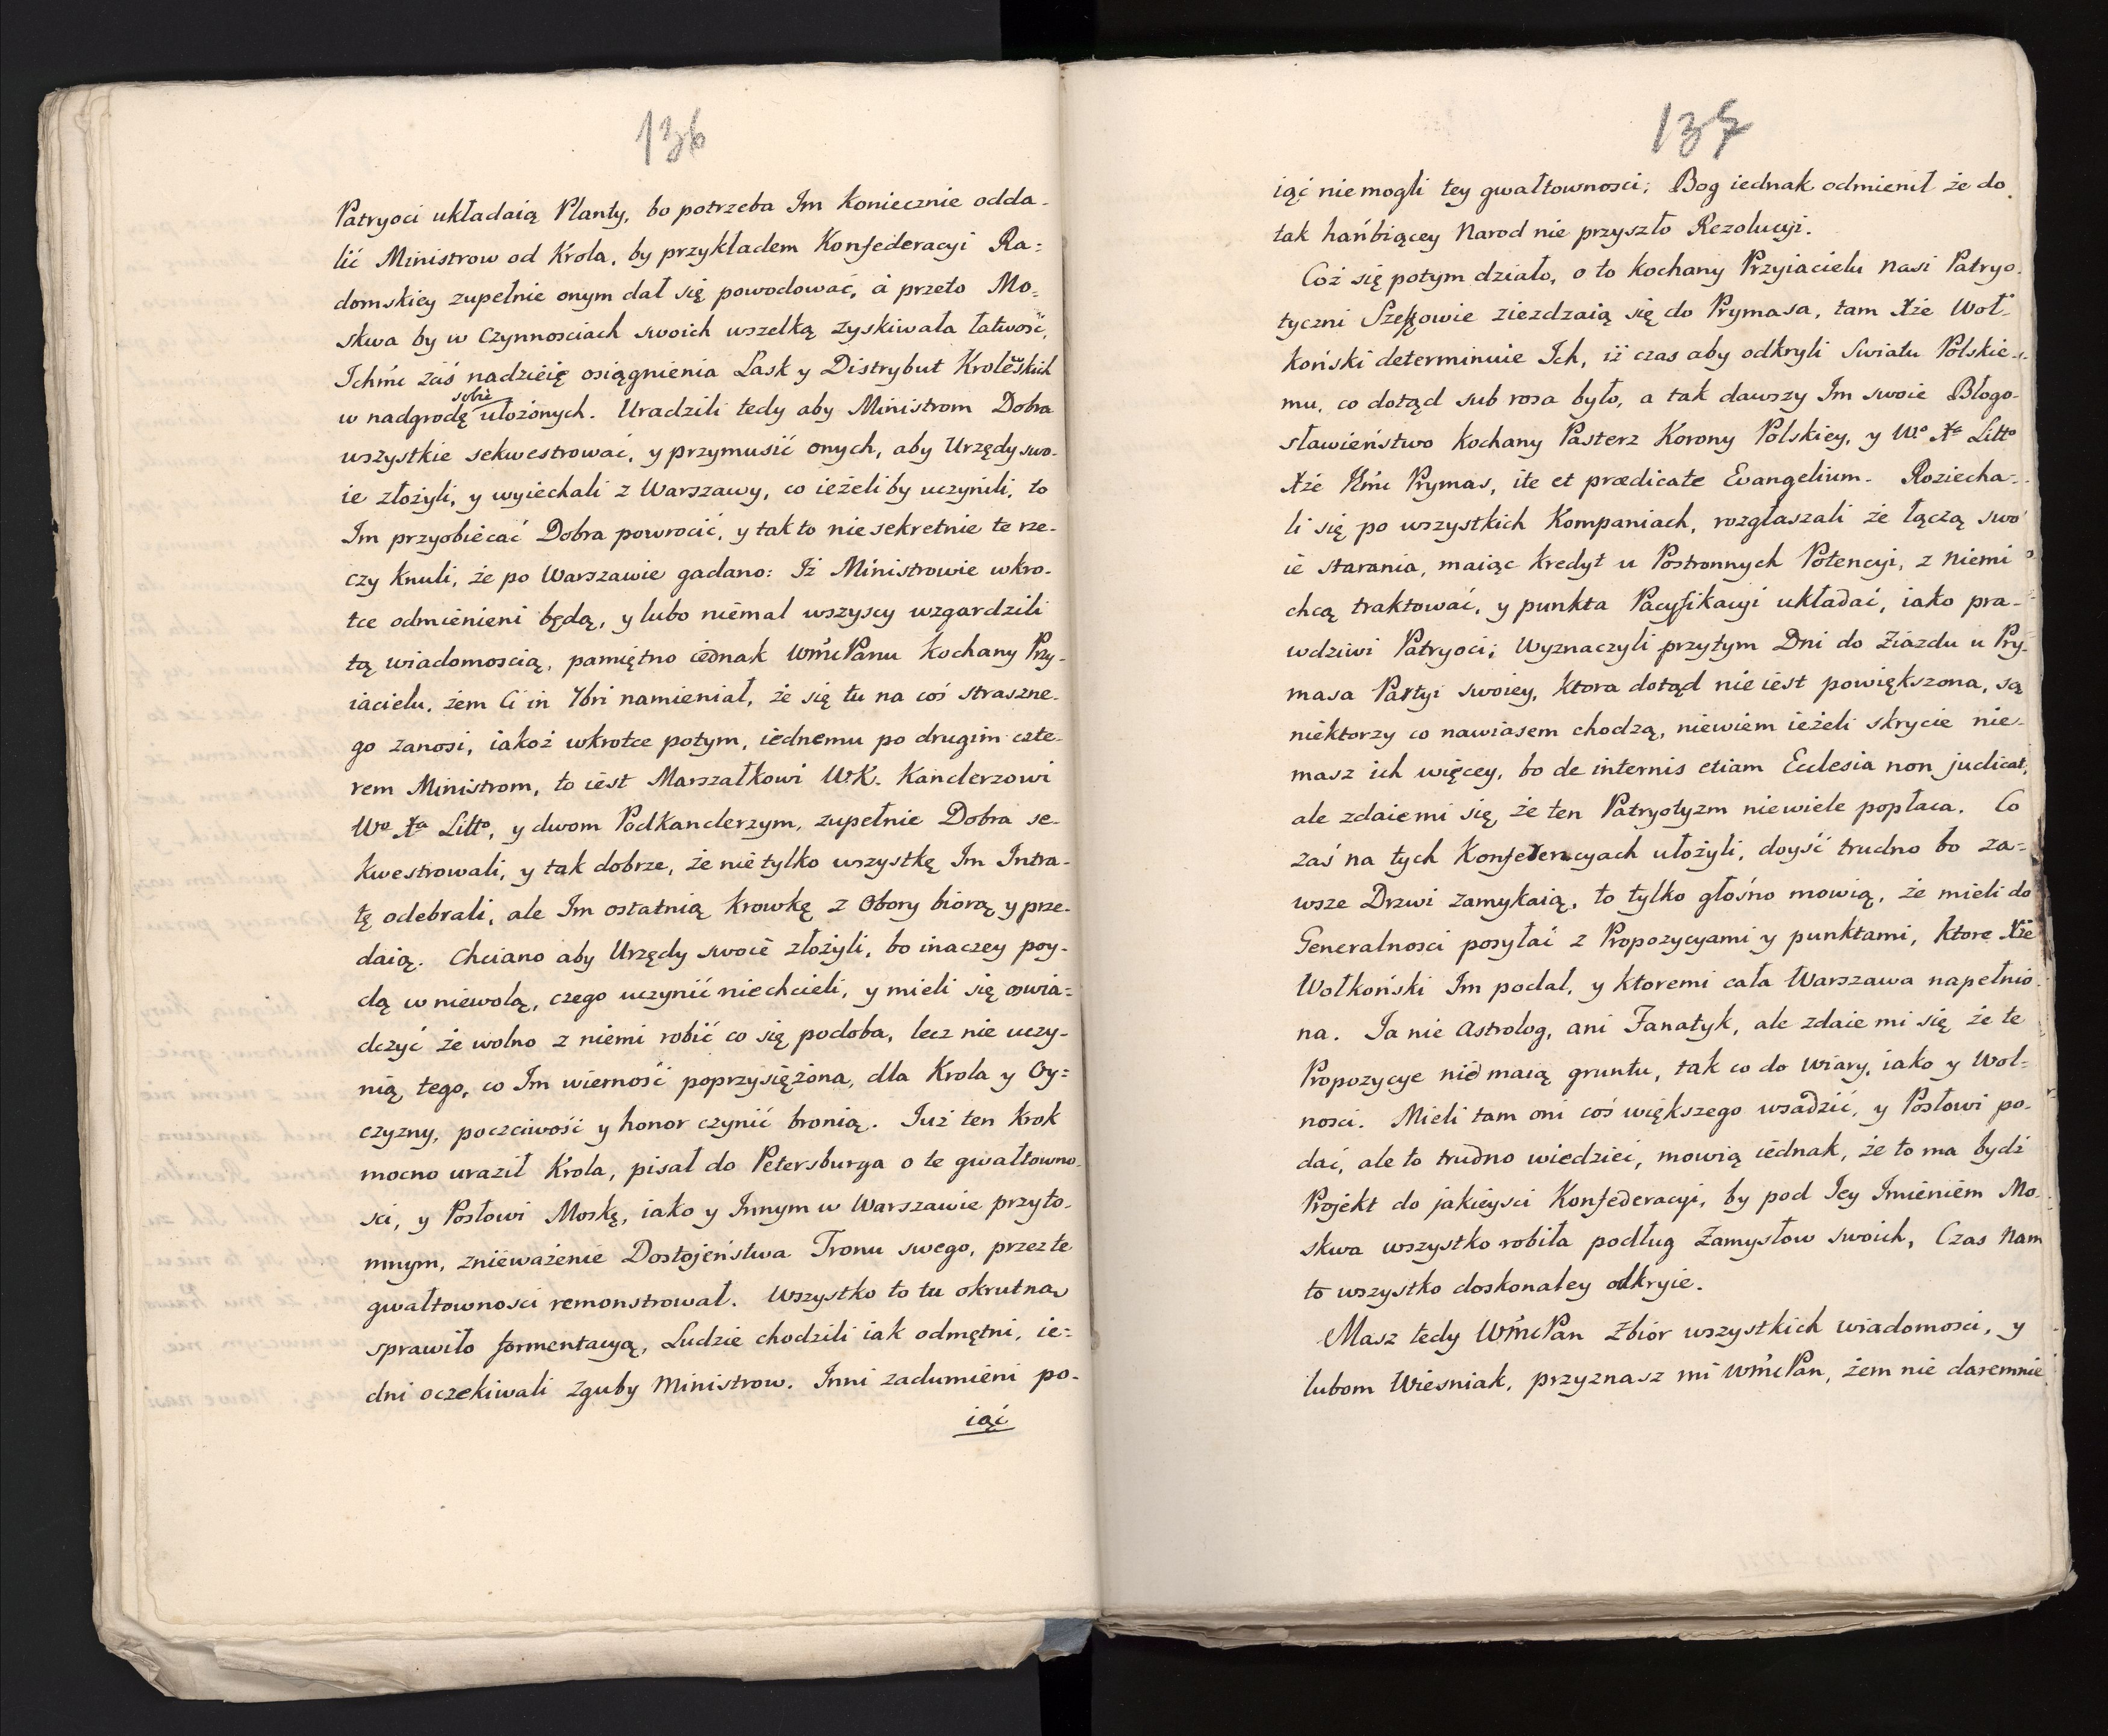 136
Patryoci układaią Planty, bo potrzeba Im koniecznie odda-
lić Ministrow od Krola, by przykładem Konfederacyi Ra=
domskiey zupełnie onym dał się powodować, à przeto Mo=
skwa by w czynnosciach swoich wszelką zyskiwała łatwość,
Ichmć zaś nadzieię osiągnienia Łask y Distrybut Krolewskich
sobie
w nadgrodę ułożonych. Uradzili tedy aby Ministrom Dobra
wszystkie sekwestrować, y przymusić onych, aby Urzędy swo-
ie złożyli, y wyiechali z Warszawy, co ieżeliby uczynili, to
Im przyobiecać Dobra powrocić, y tak to nie sekretnie te rze-
czy knuli, że po Warszawie gadano: Iż Ministrowie wkro-
tce odmienieni będą, y lubo niemal wszyscy wzgardzili
tą wiadomoscią, pamiętno iednak WmćPanu kochany Przy-
iacielu, żem Ci in 7bri namieniał, że się tu na coś straszne-
go zanosi, iakoż wkrotce potym, iednemu po drugim czte-
rem Ministrom, to iest Marszałkowi WK. Kanclerzowi
Wo Xa Litto, y dwom Podkanclerzym, zupełnie Dobra se-
kwestrowali, y tak dobrze, że nie tylko wszystkę Im Intra-
tę odebrali, ale Im ostatnią krowkę z Obory biorą y prze-
daią. Chciano aby Urzędy swoie złożyli, bo inaczey poy-
dą w niewolą, czego uczynić niechcieli, y mieli się oswia=
dczyć że wolno z niemi robić co się podoba, lecz nie uczy-
nią tego, co Im wierność poprzysiężona, dla Krola y Oy=
czyzny, poczciwość y honor czynić bronią. Już ten krok
mocno uraził Krola, pisał do Petersburga o te gwałtowno-
sci, y Posłowi Moskę, iako y Innym w Warszawie przyto-
mnym, znieważenie Dostojeństwa Tronu swego, przez te
gwałtownosci remonstrował. Wszystko to tu okrutna
sprawiło formentacyą, Ludzie chodzili iak odmętni, ie=
dni oczekiwali zguby Ministrow. Inni zadumieni po-
iąć
137
iąć nie mogli tey gwałtownosci; Bog iednak odmienił że do
tak hańbiącey Narod nie przyszło Rezolucyi.
Coż się potym działo, o to kochany Przyiacielu nasi Patryo-
tyczni Szeffowie ziezdzaią się do Prymasa, tam Xże Woł-
koński determinuie Ich, iż czas aby odkryli Swiatu Polskie-
mu, co dotąd sub rosa było, a tak dawszy Im swoie Błogo-
sławieństwo kochany Pasterz Korony Polskiey, y Wo Xa Litto
Xże JEmć Prymas, ite et prædicate Evangelium. Roziecha-
li się po wszystkich Kompaniach, rozgłaszali że łączą swo
ie starania, maiąc kredyt u Postronnych Potencyi, z niemi
chcą traktować, y punkta Pacyfikacyi układać, iako pra-
wdziwi Patryoci; Wyznaczyli przytym Dni do Ziazdu u Pry-
masa Partyi swoiey, ktora dotąd nie iest powiększona, są
niektorzy co nawiasem chodzą, niewiem ieżeli skrycie nie-
masz ich więcey, bo de internis etiam Ecclesia non judicat,
ale zdaie mi się, że ten Patryotyzm niewiele popłaca. Co
zaś na tych Konferencyach ułożyli, doyść trudno bo za=
wsze Drzwi zamykaią, to tylko głośno mowią, że mieli do
Generalnosci posyłać z Propozycyami y punktami, ktore Xże
Wołkoński Im podał, y ktoremi cała Warszawa napełnio-
na. Ia nie Astrolog, ani Fanatyk, ale zdaie mi się że te
Propozycye nie maią gruntu, tak co do Wiary, iako y Wol-
nosci. Mieli tam oni coś większego wsadzić, y Posłowi po-
dać, ale to trudno wiedzieć, mowią iednak, że to ma bydź
Projekt do jakieysci Konfederacyi, by pod Iey Imieniem Mo-
skwa wszystko robiła podług Zamysłow swoich, Czas Nam
to wszystko doskonaley odkryie.
Masz tedy WmćPan Zbior wszystkich wiadomosci, y
lubom Wiesniak, przyznasz mi WmćPan, żem nie daremnie